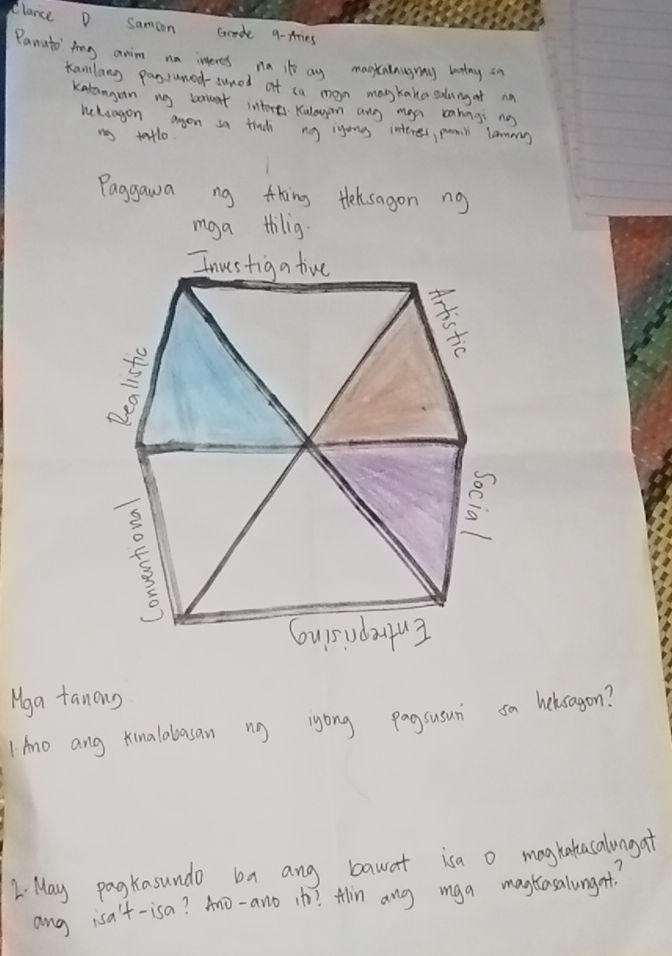 Clarice D Samson Grade 9-Aries
Panuto: Ang anim na interes na ito ay magkakaugnay batay sa
kanilang pagsunod-sunod at sa mga magkakasalungat na
katangian ng bawat interes. Kulayan ang mga bahagi ng
heksagon ayon sa tindi ng iyong interes, pumili lamang
ng tatlo.
Paggawa ng Aking Heksagon ng
mga Hilig.
Investigative
Artistic
Realistic
Social
Conventional
Enterprising
Mga tanong
1. Ano ang kinalabasan ng iyong pagsusuri sa heksagon?
2. May pagkasundo ba ang bawat isa o magkakasalungat
ang isa't-isa? Ano-ano ito? Alin ang mga magkasalungat?